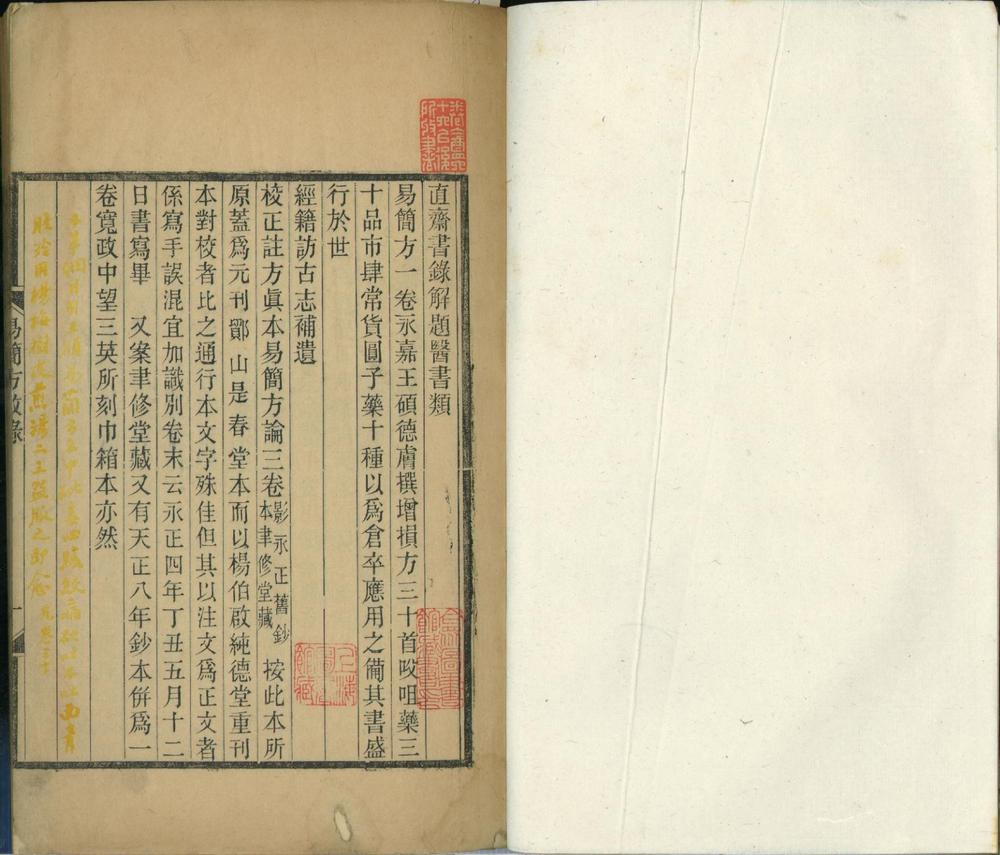 直齋書錄解題醫書類
易簡方一卷永嘉王碩德膚撰增損方三十首㕮咀藥三
十品市肆常貨圓子藥十種以爲倉卒應用之備其書盛
行於世
經籍訪古志補遺
校正註方眞本易簡方論三卷影永正舊鈔本聿修堂藏 按此本所
原蓋爲元刊鄮山是春堂本而以楊伯啟純德堂重刊
本對校者比之通行本文字殊佳但其以注文爲正文者
係寫手誤混宜加識別卷末云永正四年丁丑五月十二
日書寫畢 又案聿修堂藏又有天正八年鈔本併爲一
卷寬政中望三英所刻巾箱本亦然
肚冷用楊梅樹皮煎湯二三盌服之卽愈
易簡方敘錄
一
上海圖書館藏